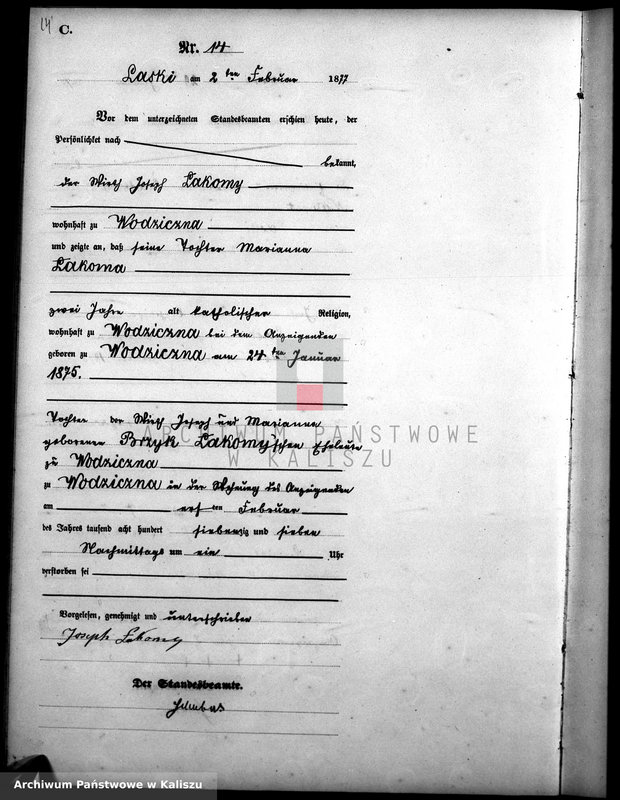 14
C.
Nr. 14
Laski am 2ten Februar 1877
Vor dem unterzeichneten Standesbeamten erschien heute, der
Persönlichkeit nach
bekannt,
der Wirth Joseph Lakomy
wohnhaft zu Wodziczna
und zeigte an, daß seine Tochter Marianna
Lakoma
zwei Jahre alt katholischer Religion,
wohnhaft zu Wodziczna bei dem Anzeigenden
geboren zu Wodziczna am 24ten Januar
1875.
Tochter der Wirth Joseph und Marianna
geborenen Brzyk Lakomy'schen Eheleute
zu Wodziczna
zu Wodziczna in der Wohnung des Anzeigenden
am ersten Februar
des Jahres tausend acht hundert siebenzig und sieben
Nachmittags um ein Uhr
verstorben sei
Vorgelesen, genehmigt und unterschrieben
Joseph Lakomy
Der Standesbeamte.
ARCHIWUM PAŃSTWOWE
W KALISZU
Archiwum Państwowe w Kaliszu